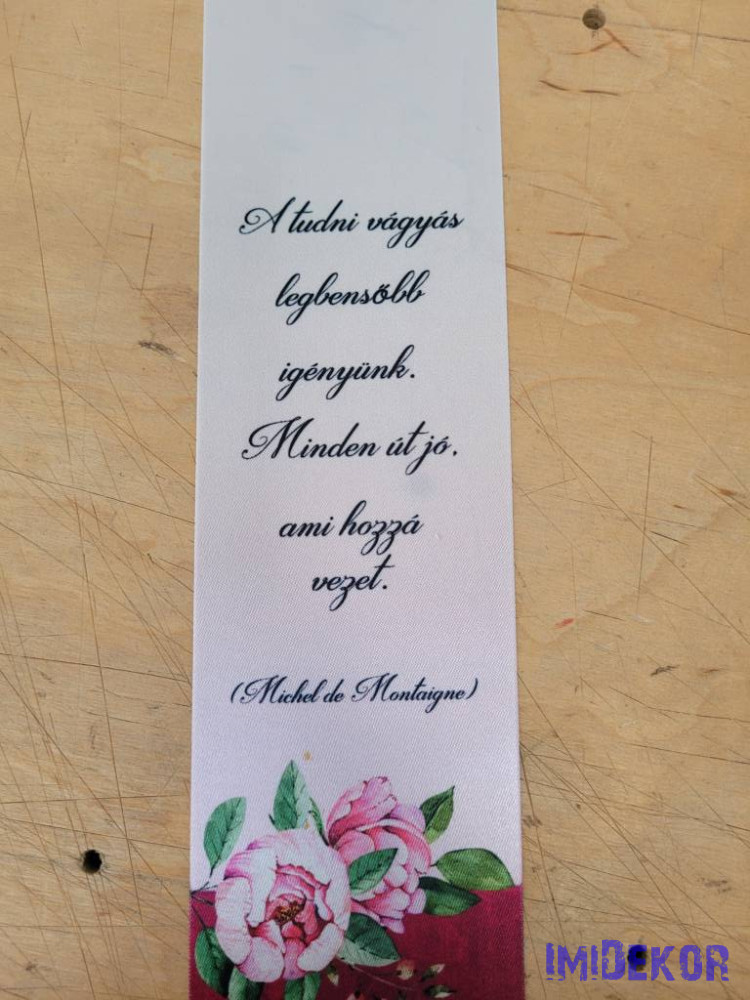 A tudni vágyás
legbensőbb
igényünk.
Minden út jó,
ami hozzá
vezet.
(Michel de Montaigne)
IMIDEKOR